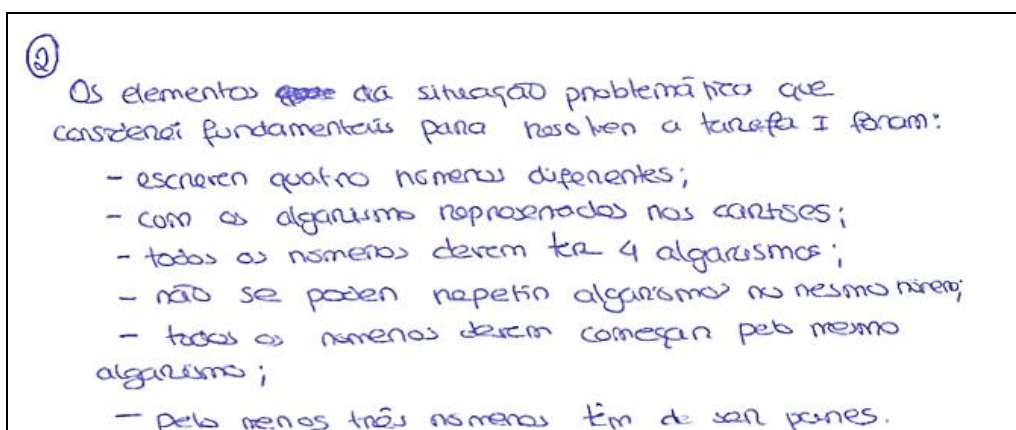 ②
Os elementos da situação problemática que
considerei fundamentais para resolver a tarefa I foram:
- escrever quatro números diferentes;
- com os algarismo representados nos cartões;
- todos os números devem ter 4 algarismos;
- não se podem repetir algarismos no mesmo número;
- todos os números devem começar pelo mesmo
algarismo;
- Pelo menos três números têm de ser pares.